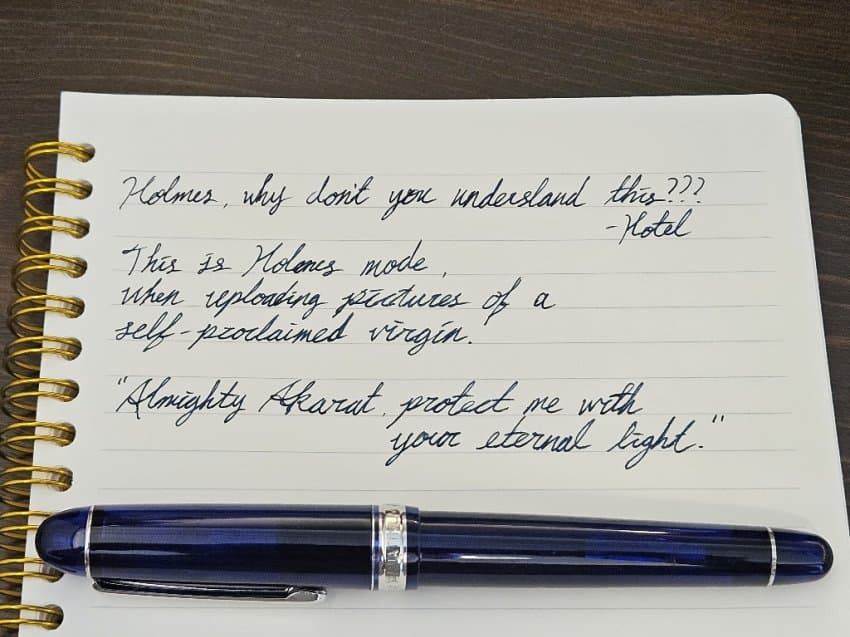 Holmes, why don't you understand this???
-Hotel
This is Holmes mode,
when uploading pictures of a
self-proclaimed virgin.
"Almighty Akarat, protect me with
your eternal light."